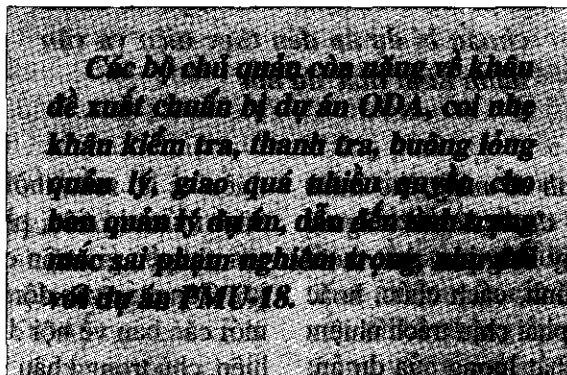 Các bộ chủ quản còn nặng về khâu
đề xuất chuẩn bị dự án ODA, coi nhẹ
khâu kiểm tra, thanh tra, buông lỏng
quản lý, giao quá nhiều quyền cho
ban quản lý dự án, dẫn đến tình trạng
mắc sai phạm nghiêm trọng, như đối
với dự án PMU-18.